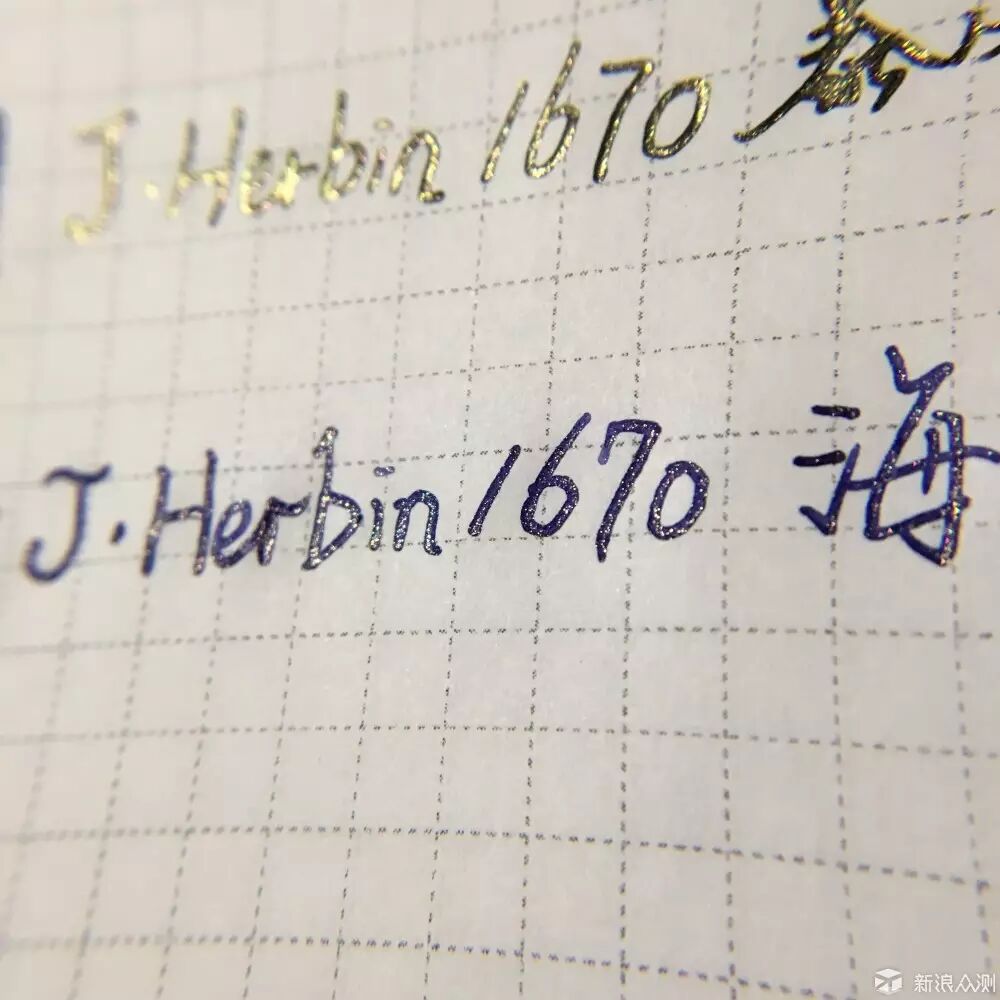 J. Herbin 1670
J. Herbin 1670 海
新浪众测